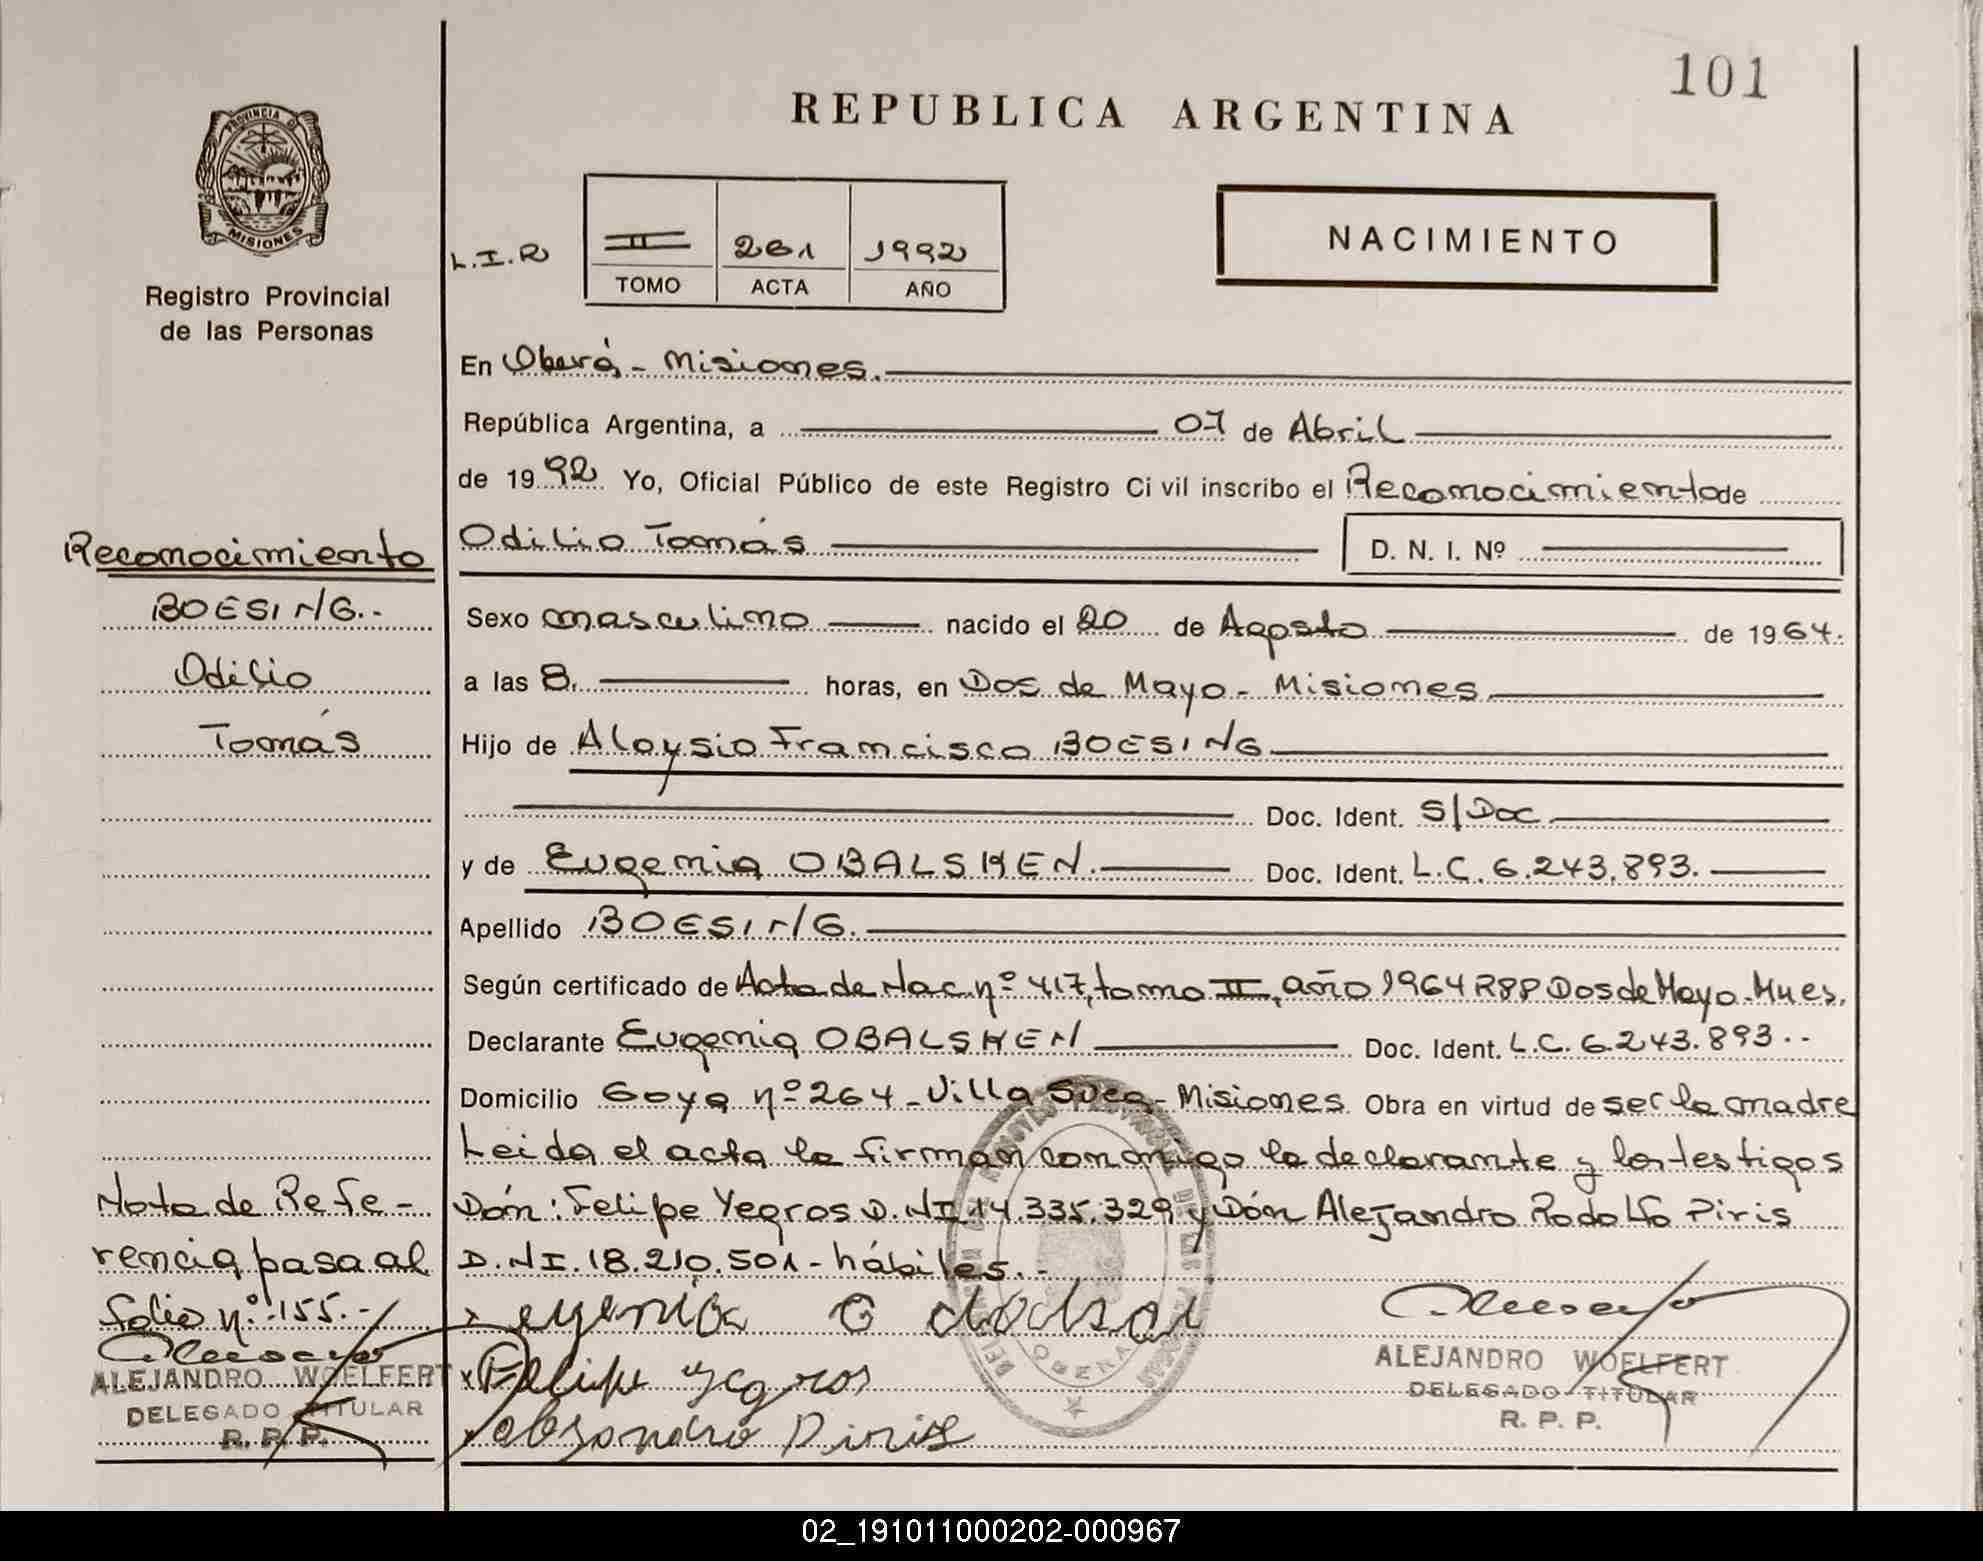 101
REPUBLICA ARGENTINA
PROVINCIA DE
MISIONES
Registro Provincial
de las Personas
L.I.R
II 261 1992
TOMO ACTA AÑO
NACIMIENTO
En Oberá - Misiones.
República Argentina, a 07 de Abril
de 1992 Yo, Oficial Público de este Registro Ci vil inscribo el Reconocimiento de
Odilio Tomás D. N. I. Nº
Sexo masculino nacido el 20 de Agosto de 1964.
a las 8. horas, en Dos de Mayo - Misiones
Hijo de Aloysio Francisco BOESING
Doc. Ident. S/Doc
y de Eugenia OBALSKEN. Doc. Ident. L.C. 6.243.893.
Apellido BOESING.
Según certificado de Acta de Nac. nº 417, tomo II, año 1964 RPP Dos de Mayo - Mnes.
Declarante Eugenia OBALSKEN Doc. Ident. L.C. 6.243.893..
Domicilio Goya nº 264 - Villa Svea - Misiones Obra en virtud de ser la madre
Leida el acta la firman conmigo la declarante y los testigos
Dón: Felipe Yegros D.NI 14.335.329 y Dón Alejandro Rodolfo Piris
D.NI. 18.210.501 - hábiles. -
x eugenia o
x Felipe Yegros
x Piris
ALEJANDRO WOELFERT
DELEGADO TITULAR
R. P. P.
Reconocimiento
BOESING.-
Odilio
Tomás
Nota de Refe-
rencia pasa al
folio nº 155.-
ALEJANDRO WOELFERT
DELEGADO TITULAR
R. P. P.
02_191011000202-000967